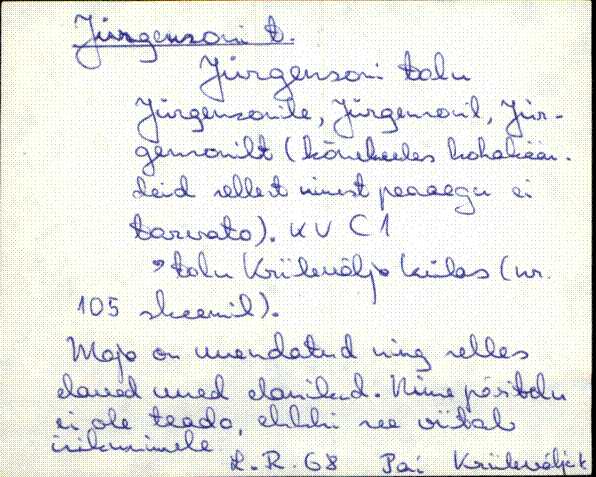 Jürgensoni t.
Jürgensoni talu
Jürgensonile, Jürgensonil, Jür-
gensonilt (kõnekeeles kohakään-
deid sellest nimest peaaegu ei
tarvata). KV C1
talu Kriilevälja külas (nr.
105 skeemil).
Maja on uuendatud ning selles
elavad uued elanikud. Nime päritolu
ei ole teada, ehkki see viitab
isikunimele
L.R. 68 Pai Kriileväljat